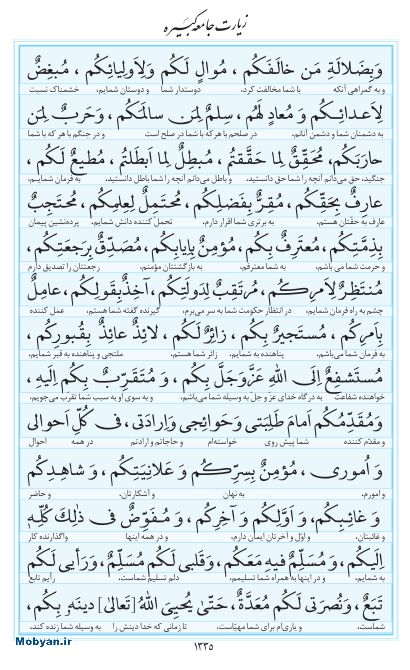 زیارت جامعه کبیره
وَبِضَلالَةِ مَن خالَفَكُم ، مُوالٍ لَكُم وَلِاَولِيائِكُم ، مُبغِضٌ
و به گمراهی آنکه با شما مخالفت کرد، دوستدار شما و دوستان شمایم، خشمناک نسبت
لِاَعدائِكُم وَ مُعادٍ لَهُم ، سِلمٌ لِمَن سالَمَكُم ، وَحَربٌ لِمَن
به دشمنان شما و دشمن آنانم، در صلحم با هر که با شما در صلح است و در جنگم با هر که با شما
حارَبَكُم، مُحَقِّقٌ لِما حَقَّقتُم ، مُبطِلٌ لِما اَبطَلتُم ، مُطيعٌ لَكُم ،
جنگید، حق می‌دانم آنچه را شما حق دانستید، و باطل می‌دانم آنچه را شما باطل دانستید، به فرمان شمایم،
عارِفٌ بِحَقِّكُم ، مُقِرٌّ بِفَضلِكُم ، مُحتَمِلٌ لِعِلمِكُم ، مُحتَجِبٌ
عارف به حقتان هستم، به برتری شما اقرار دارم، تحمل کننده دانش شمایم، پرده‌نشین پیمان
بِذِمَّتِكُم ، مُعتَرِفٌ بِكُم ، مُؤمِنٌ بِاِيابِكُم ، مُصَدِّقٌ بِرَجعَتِكُم ،
و حرمت شما می باشم، به شما معترفم، به بازگشتتان مؤمنم، رجعتتان را تصدیق دارم
مُنتَظِرٌ لِاَمرِكُم ، مُرتَقِبٌ لِدَولَتِكُم ، آخِذٌ بِقَولِكُم ، عامِلٌ
چشم به راه فرمان شمایم، در انتظار حکومت شما به سر می‌برم، گیرنده گفته شما هستم، عمل کننده
بِاَمرِكُم ، مُستَجيرٌ بِكُم ، زائِرٌ لَكُم ، لائِذٌ عائِذٌ بِقُبورِكُم ،
به فرمان شما می‌باشم، پناهنده به شمایم، زائر شما هستم، ملتجی و پناهنده به قبر شمایم،
مُستَشفِعٌ اِلَى اللهِ عَزَّوَجَلَّ بِكُم ، وَ مُتَقَرِّبٌ بِكُم اِلَيهِ ،
خواهنده شفاعت به درگاه خدای عزّ و جل به وسیله شما می‌باشم، و به سوی او به سبب شما تقرب می‌جویم،
وَ مُقَدِّمُكُم اَمامَ طَلِبَتى وَحَوائِجى وَاِرادَتى ، فى كُلِّ اَحوالى
و مقدّم کننده شما پیش روی خواسته‌ام و حاجاتم و ارادتم در همه احوال
وَ اُمورى ، مُؤمِنٌ بِسِرِّكُم وَ عَلانِيَتِكُم ، وَ شاهِدِكُم
و امورم، به نهان و آشکارتان، و حاضر
وَ غائِبِكُم ، وَ اَوَّلِكُم وَ آخِرِكُم ، وَ مُفَوِّضٌ فى ذلِكَ كُلِّهِ
و غائبتان، و اوّل و آخرتان ایمان دارم، و در همه اینها واگذارنده کار
اِلَيكُم ، وَ مُسَلِّمٌ فيهِ مَعَكُم ، وَقَلبى لَكُم مُسَلِّمٌ، وَرَأيى لَكُم
به شمایم، و در اینها به همراه شما تسلیمم، دلم تسلیم شماست، رأیم تابع
تَبَعٌ ، وَنُصرَتى لَكُم مُعَدَّةٌ، حَتّىٰ يُحيِىَ اللهُ [تَعالىٰ] دينَهُ بِكُم ،
شماست، و یاری‌ام برای شما مهیّاست، تا زمانی که خدا دینش را به وسیله شما زنده کند،
۱۳۳۵
Mobyan.ir